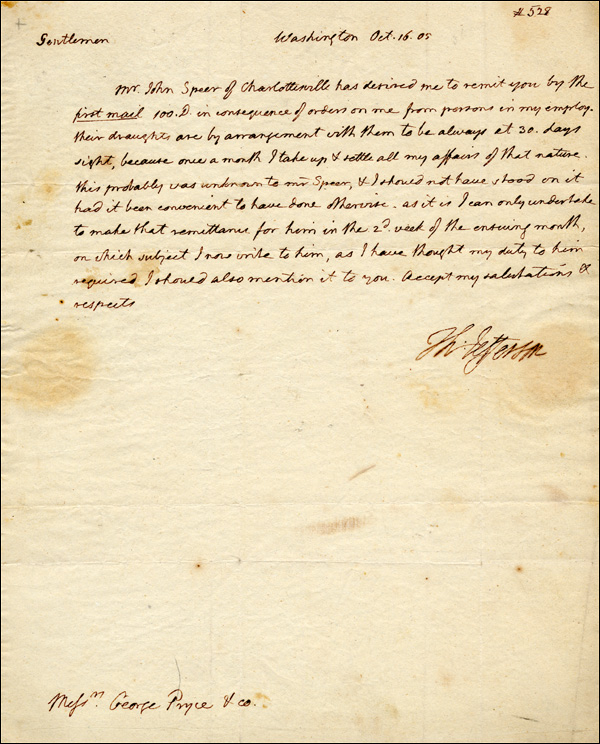 # 528
Gentlemen Washington Oct. 16. 05
Mr. John Speer of Charlottesville has desired me to remit you by the
first mail 100. D. in consequence of orders on me from persons in my employ.
their draughts are by arrangement with them to be always at 30. days
sight, because once a month I take up & settle all my affairs of that nature.
this probably was unknown to mr Speer, & I should not have stood on it
had it been convenient to have done otherwise. as it is I can only undertake
to make that remittance for him in the 2d. week of the ensuing month,
on which subject I now write to him, as I have thought my duty to him
required I should also mention it to you. Accept my salutations &
respects
Th: Jefferson
Messrs. George Pryce & co.